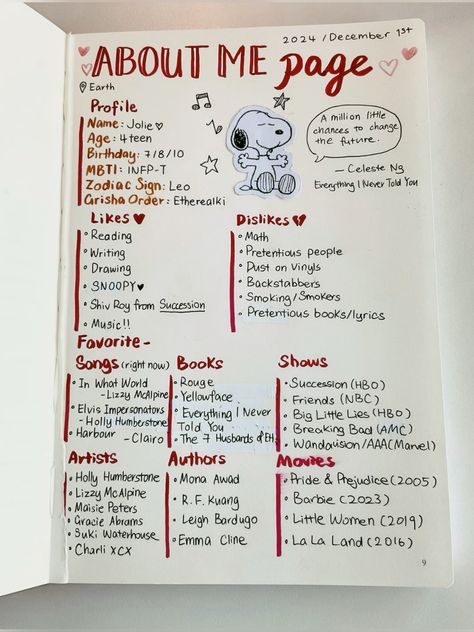 2024 / December 1st
ABOUT ME page
Earth
Profile
Name: Jolie
Age: 4teen
Birthday: 7/8/10
MBTI: INFP-T
Zodiac Sign: Leo
Grisha Order: Etherealki
A million little
chances to change
the future.
— Celeste Ng
Everything I Never Told You
Likes
• Reading
• Writing
• Drawing
• SNOOPY
• Shiv Roy from Succession
• Music!!
Dislikes
• Math
• Pretentious people
• Dust on Vinyls
• Backstabbers
• Smoking/Smokers
• Pretentious books/lyrics
Favorite -
Songs (right now)
• In What World
- Lizzy McAlpine
• Elvis Impersonators
- Holly Humberstone
• Harbour - Clairo
Books
• Rouge
• Yellowface
• Everything I Never
Told You
• The 7 Husbands of EH
Shows
• Succession (HBO)
• Friends (NBC)
• Big Little Lies (HBO)
• Breaking Bad (AMC)
• Wandavision/AAA (Marvel)
Artists
• Holly Humberstone
• Lizzy McAlpine
• Maisie Peters
• Gracie Abrams
• Suki Waterhouse
• Charli XCX
Authors
• Mona Awad
• R.F. Kuang
• Leigh Bardugo
• Emma Cline
Movies
• Pride & Prejudice (2005)
• Barbie (2023)
• Little Women (2019)
• La La Land (2016)
9